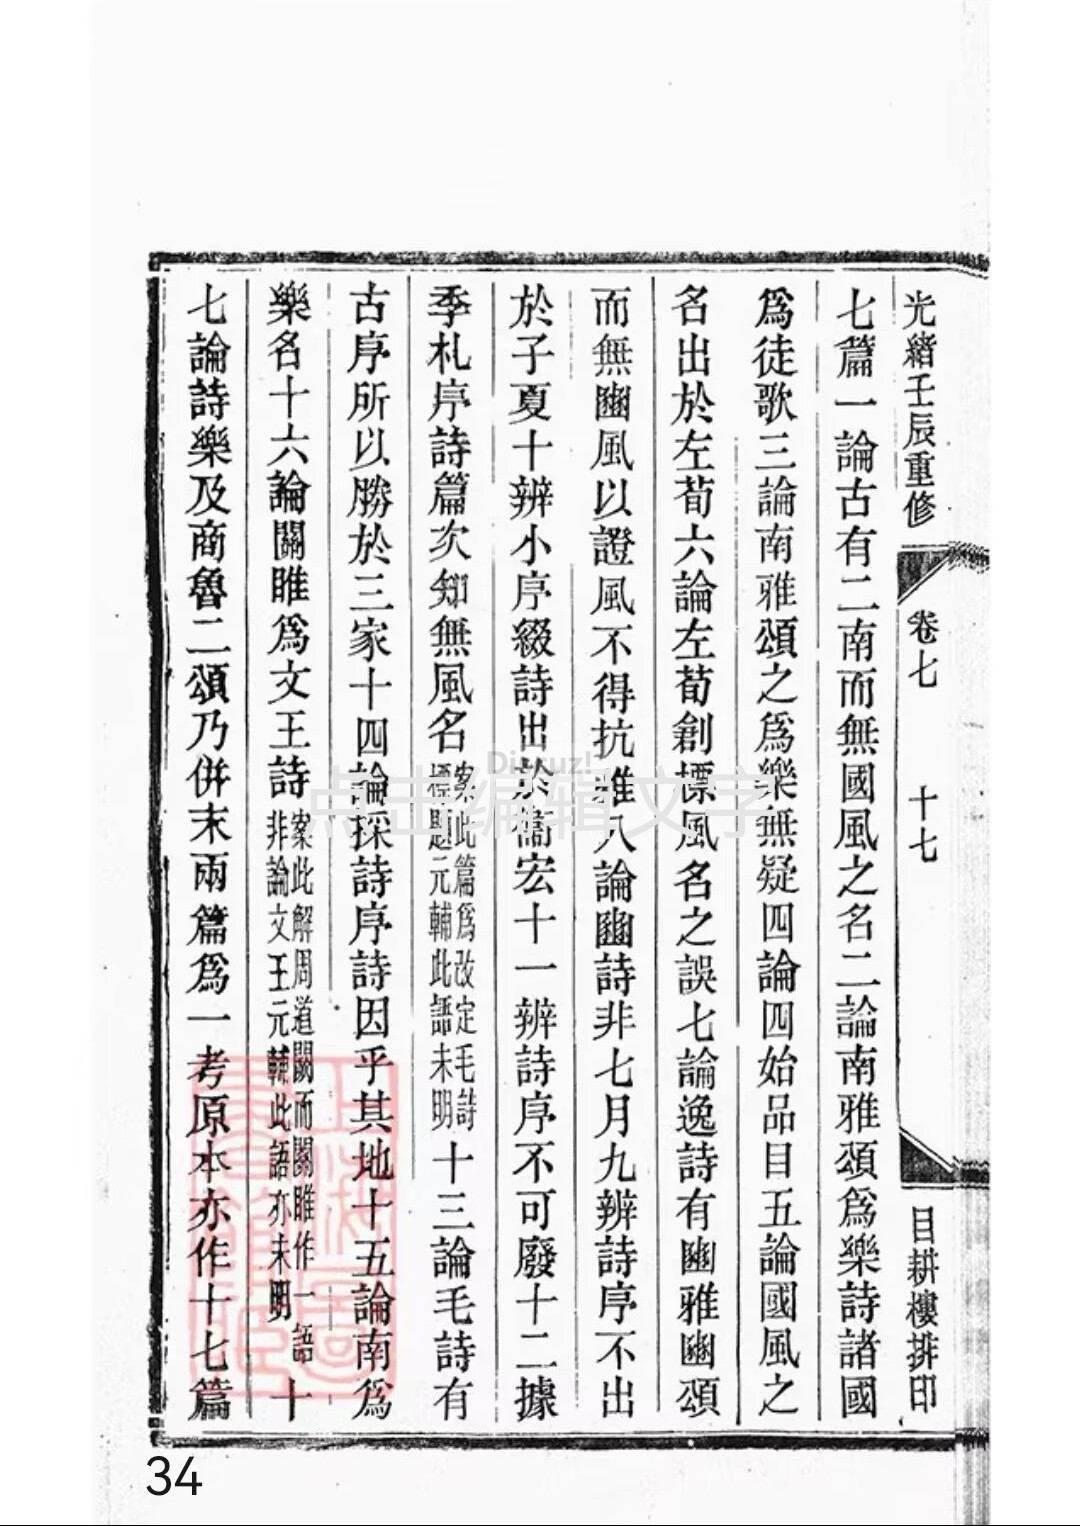 光緒壬辰重修
卷七
十七
目耕樓排印
七篇一論古有二南而無國風之名二論南雅頌爲樂詩諸國
爲徒歌三論南雅頌之爲樂無疑四論四始品目五論國風之
名出於左荀六論左荀創摽風名之誤七論逸詩有豳雅豳頌
而無豳風以證風不得抗雅八論豳詩非七月九辨詩序不出
於子夏十辨小序綴詩出於衞宏十一辨詩序不可廢十二據
季札序詩篇次知無風名
案此篇爲改定毛詩
摽題元輔此語未明
十三論毛詩有
古序所以勝於三家十四論採詩序詩因乎其地十五論南爲
樂名十六論關雎爲文王詩
案此解周道闕而關雎作一語
非論文王元輔此語亦未明
十
七論詩樂及商魯二頌乃併末兩篇爲一考原本亦作十七篇
Discuz!
点击编辑文字
34